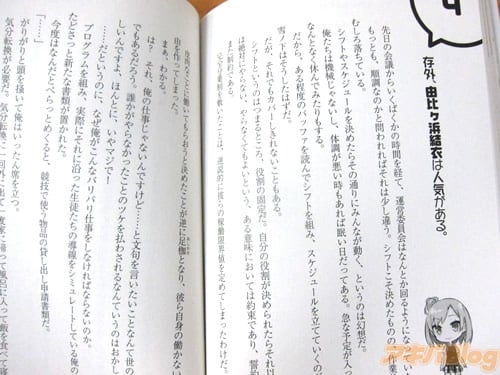 存外、由比ヶ浜結衣は人気がある。
先日の会議からいくばくかの時間を経て、運営委員会はなんとか回るように
もっとも、順調なのかと問われればそれは少し違う。シフトこそ決めたものの
むしろ落ちている。
シフトやスケジュールを決めたらその通りにみんなが動く、というのは幻想だ。
俺たちは機械じゃないし、体調が悪い時もあれば眠い日だってある。急な予定が入っ
なんとなく休んでみたりもする。
だから、ある程度のバッファを読んでシフトを組み、スケジュールを立てていくの
雪ノ下はそうしたはずだ。
だが、それでもカバーしきれないこともある。
シフトというのはつまるところ、役割の固定だ。自分の役割が決められたらそれ
は絶対にやらない、やらなくてもよいという、ある意味においては約束であり、誓約
また制約である。
完全な業務を敷いたことは、逆説的に彼らの稼働限界値を定めてしまったわけだ。
度量のごとに働いてもらおうと決めたことが逆に足枷となり、彼ら自身の働かない
由を作ってしまった。
は？ それ、俺の仕事じゃないんですけど……と文句を言いたいことなんて世の
でもあるだろう。誰かがやらなかったことのツケを払わされるなんていうのはおかし
しいんですよ、ほんとに。いやマジで！
……だというのに、なぜ俺がこんなバリバリ仕事をしなければならないのか。
プログラムを組み、実際にそれに沿った生徒たちの導線をシミュレートしている
たどさっと新たな書類が置かれた。
今度はなんだとぺらっとめくると、競技で使う物品の貸し出し申請書類だ。
「……」
がりがりと頭を掻いて俺はいったん席を立つ。
気分転換が必要だ。
アキバBlog